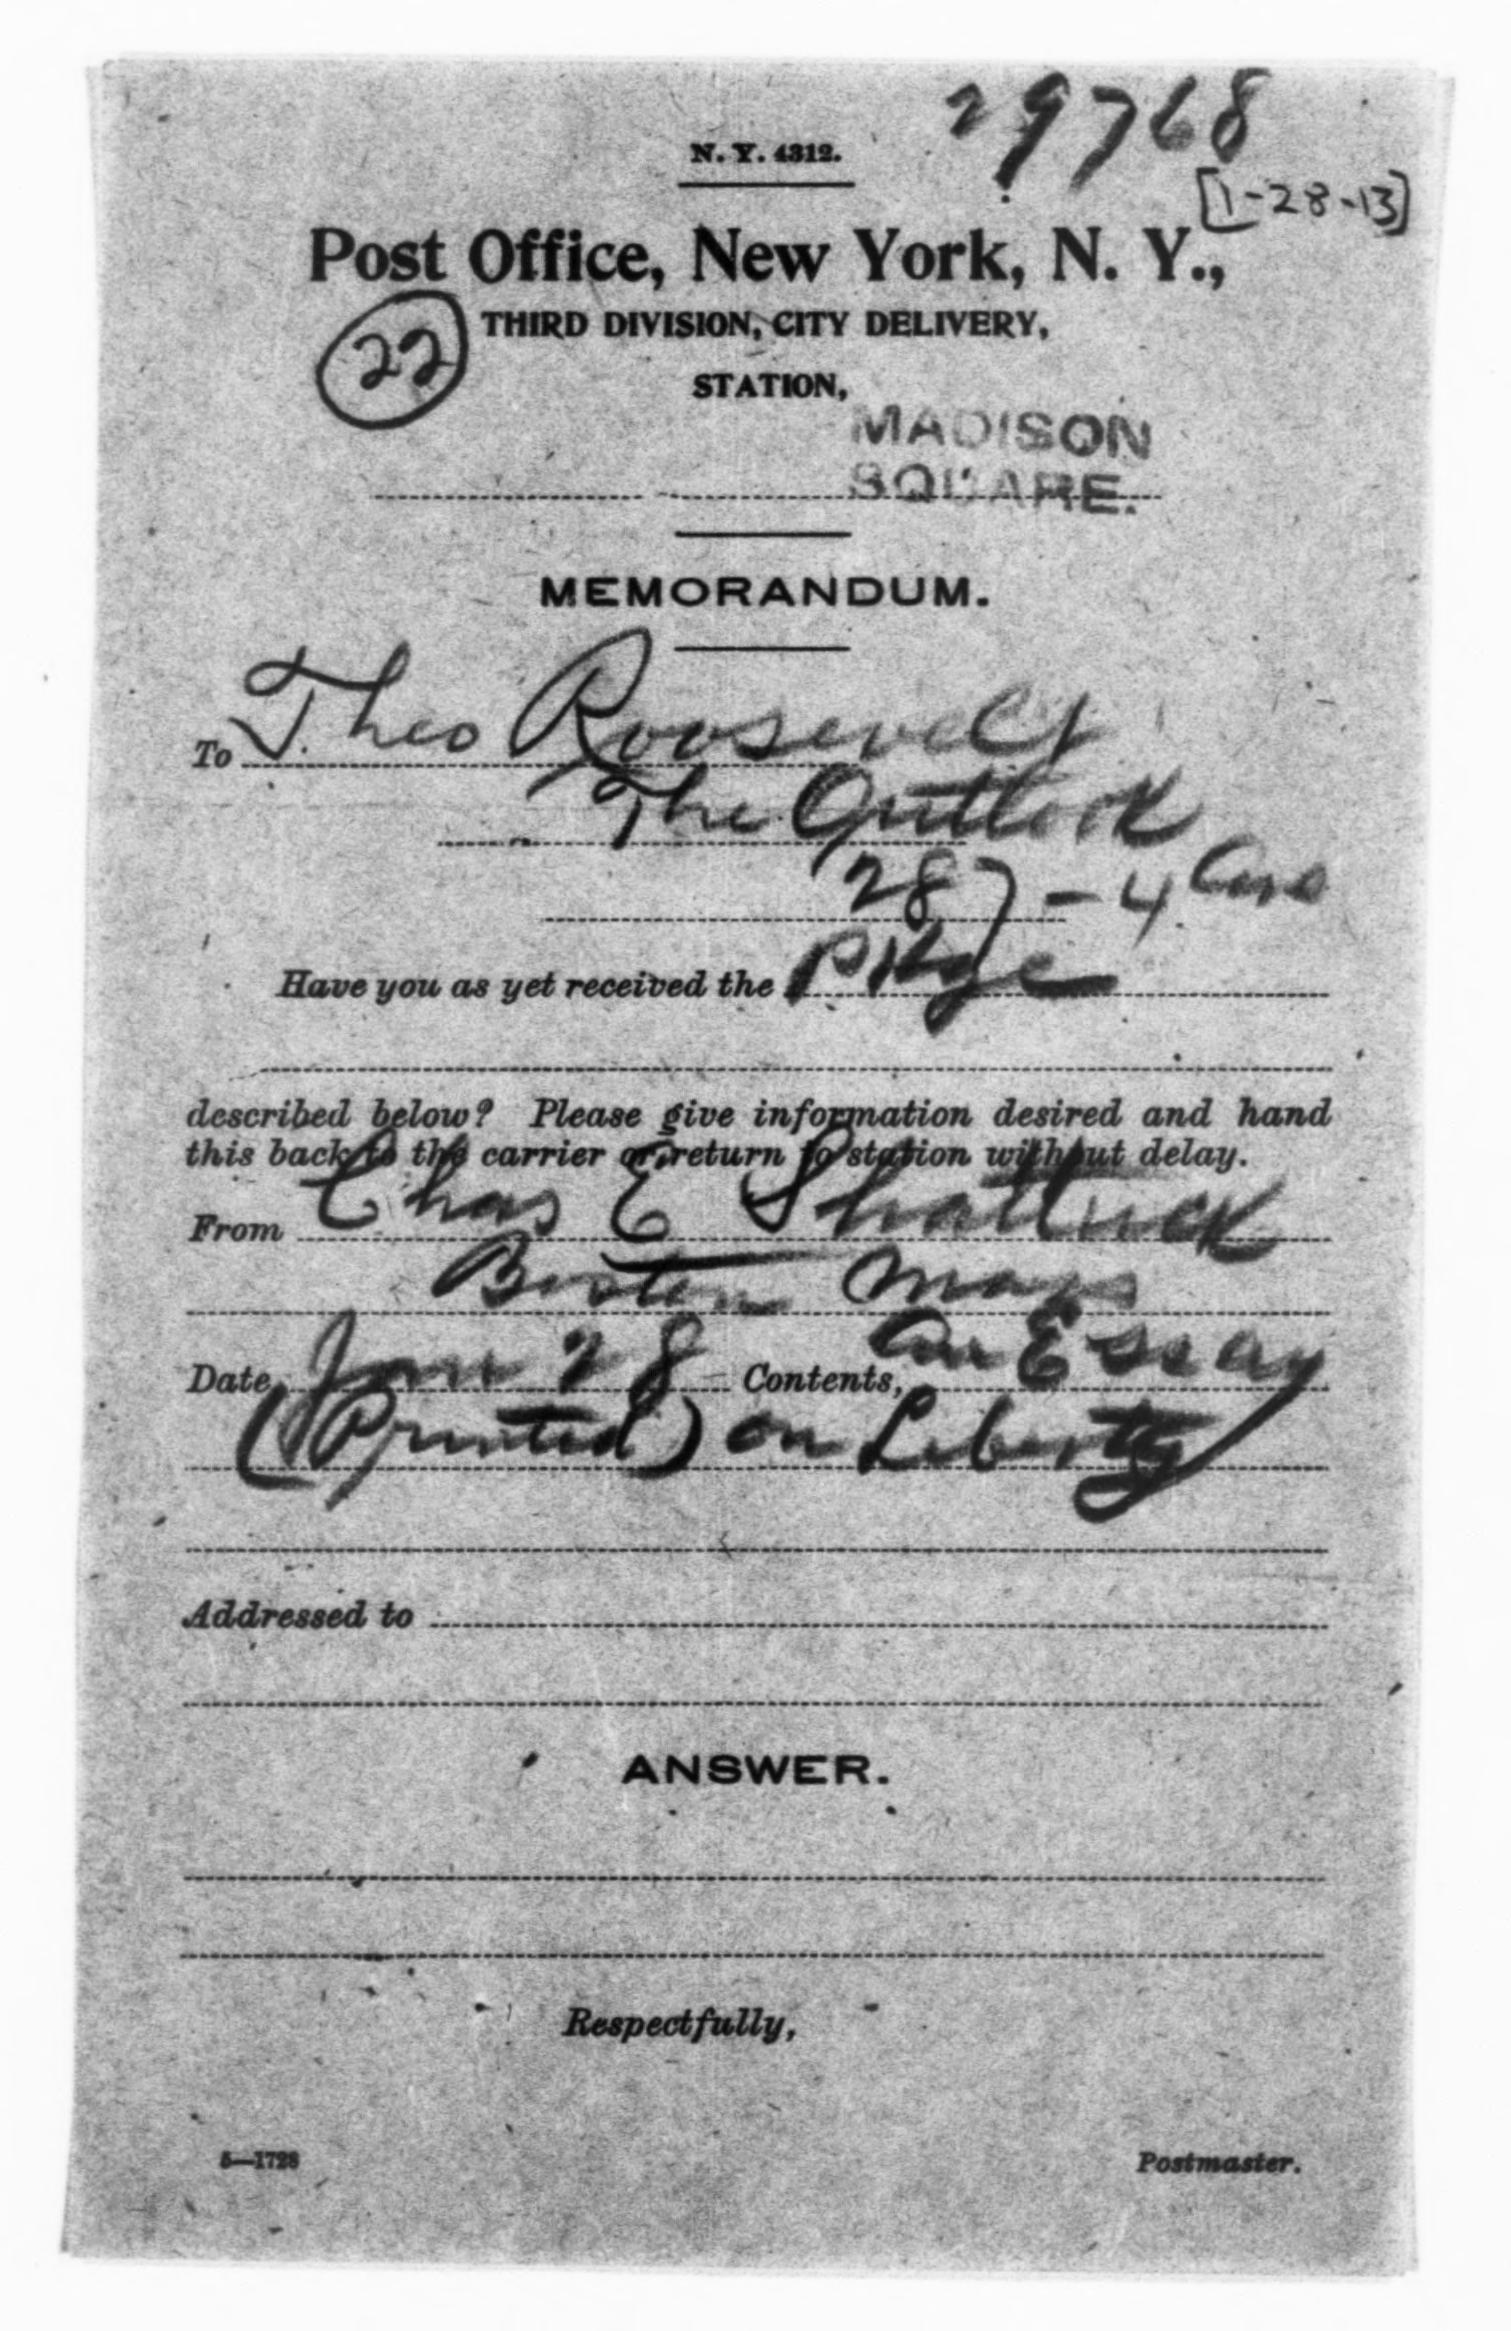 29768
N. Y. 4312.
[1-28-13]
Post Office, New York, N. Y.,
22
THIRD DIVISION, CITY DELIVERY,
STATION,
MADISON
SQUARE.
MEMORANDUM.
To Theo Roosevelt
The Outlook
287-4 Ave
Have you as yet received the Pkge
described below? Please give information desired and hand
this back to the carrier or return to station without delay.
From Chas E Shattuck
Boston Mass
Date, Jan 28 Contents, An Essay
(Printed) on Liberty
Addressed to
ANSWER.
Respectfully,
5—1728
Postmaster.